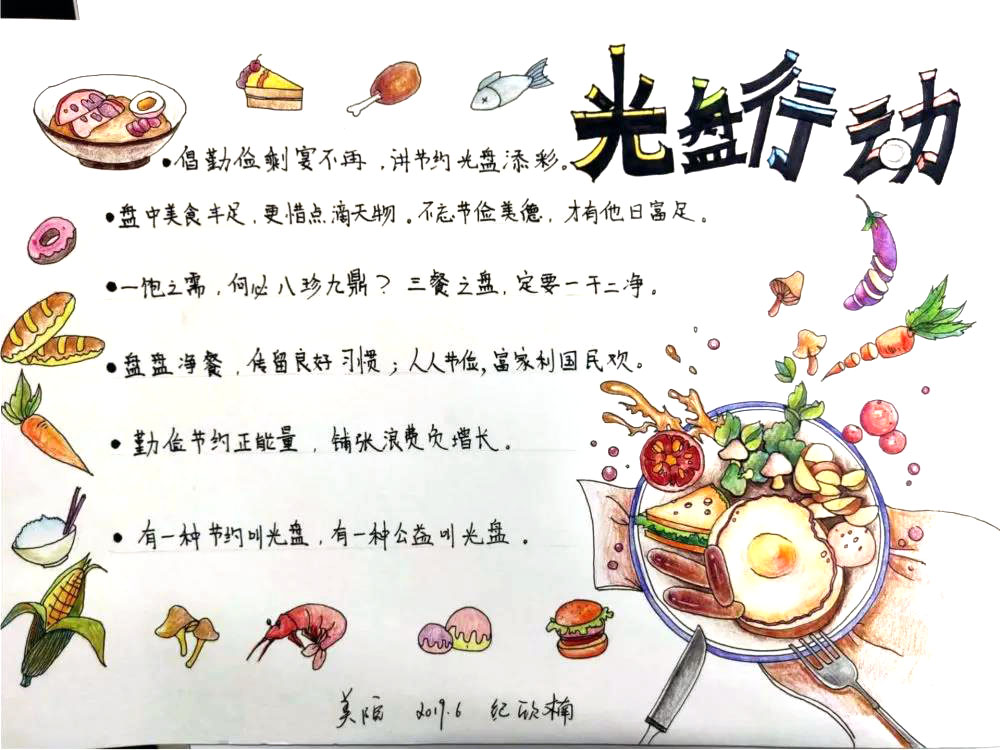 光盘行动
•倡勤俭剩宴不再,讲节约光盘添彩。
•盘中美食丰足,更惜点滴天物。不忘节俭美德,才有他日富足。
•一饱之需,何必八珍九鼎?三餐之盘,定要一干二净。
•盘盘净餐,传留良好习惯;人人节俭,富家利国民欢。
•勤俭节约正能量,铺张浪费负增长。
•有一种节约叫光盘,有一种公益叫光盘。
2019.6 纪欣楠